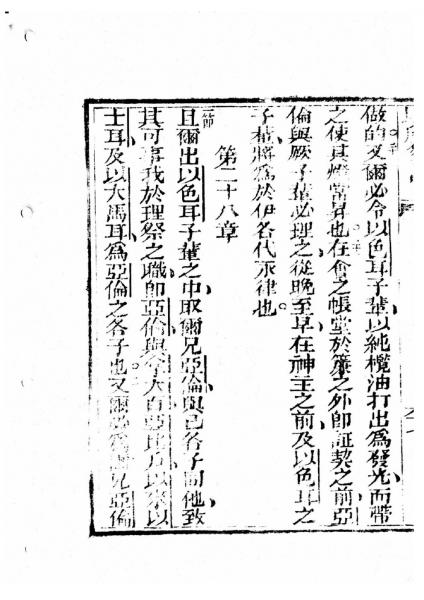 做的又爾必令以色耳子輩以純欖油打出為發光而帶
之使其燈常昇也在會之帳堂於簾之外即証契之前亞
倫與厥子輩必理之從晚至早在神主之前及以色耳之
子輩將為於伊各代永律也
第二十八章
一節
且爾出以色耳子輩之中取爾兄亞倫與己各子同他致
其可事我於理祭之職即亞倫與
士耳及以大馬耳為亞倫之各子也又爾必為爾兄亞倫